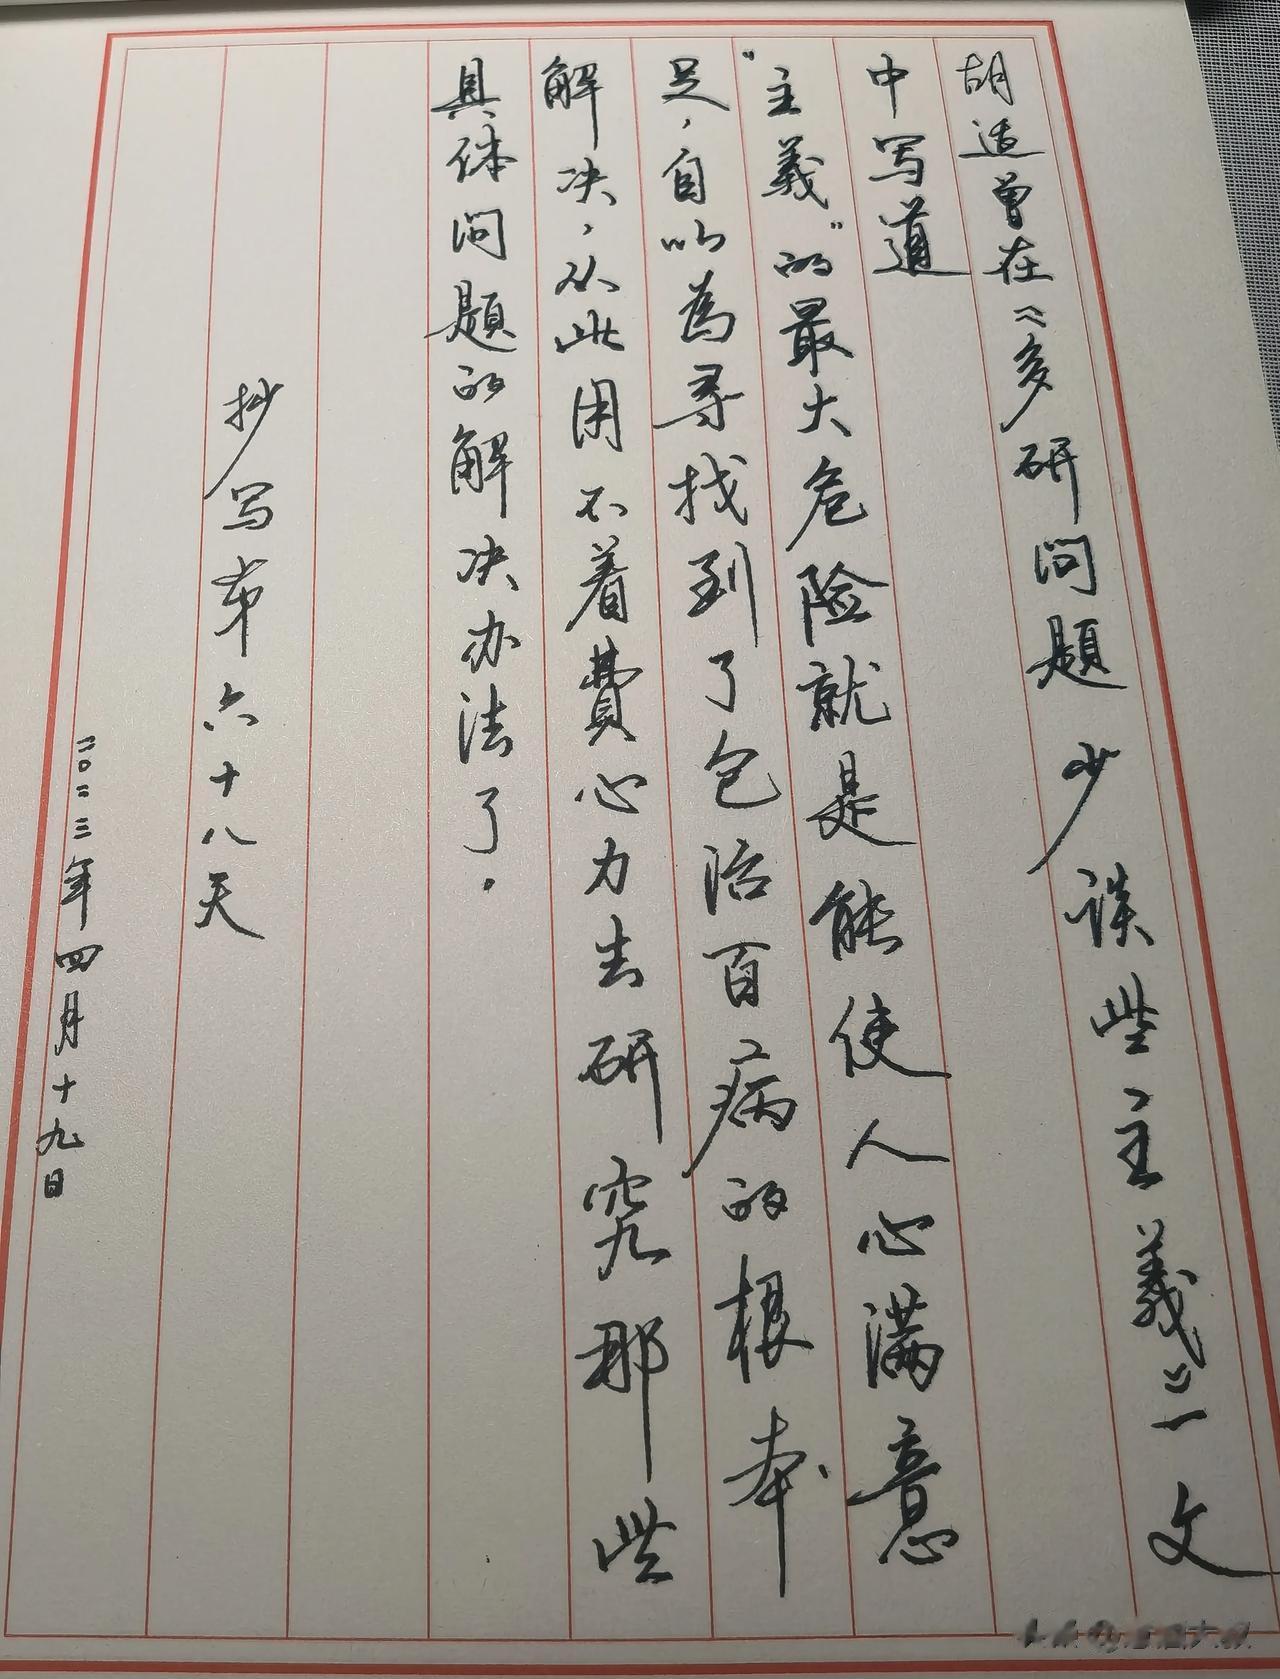 胡适曾在《多研问题 少谈些主義》一文
中写道
“主義”的最大危险就是能使人心满意
足，自以為寻找到了包治百病的根本
解决，从此用不着費心力去研究那些
具体问题的解决办法了。
抄写第六十八天
二〇二三年四月十九日